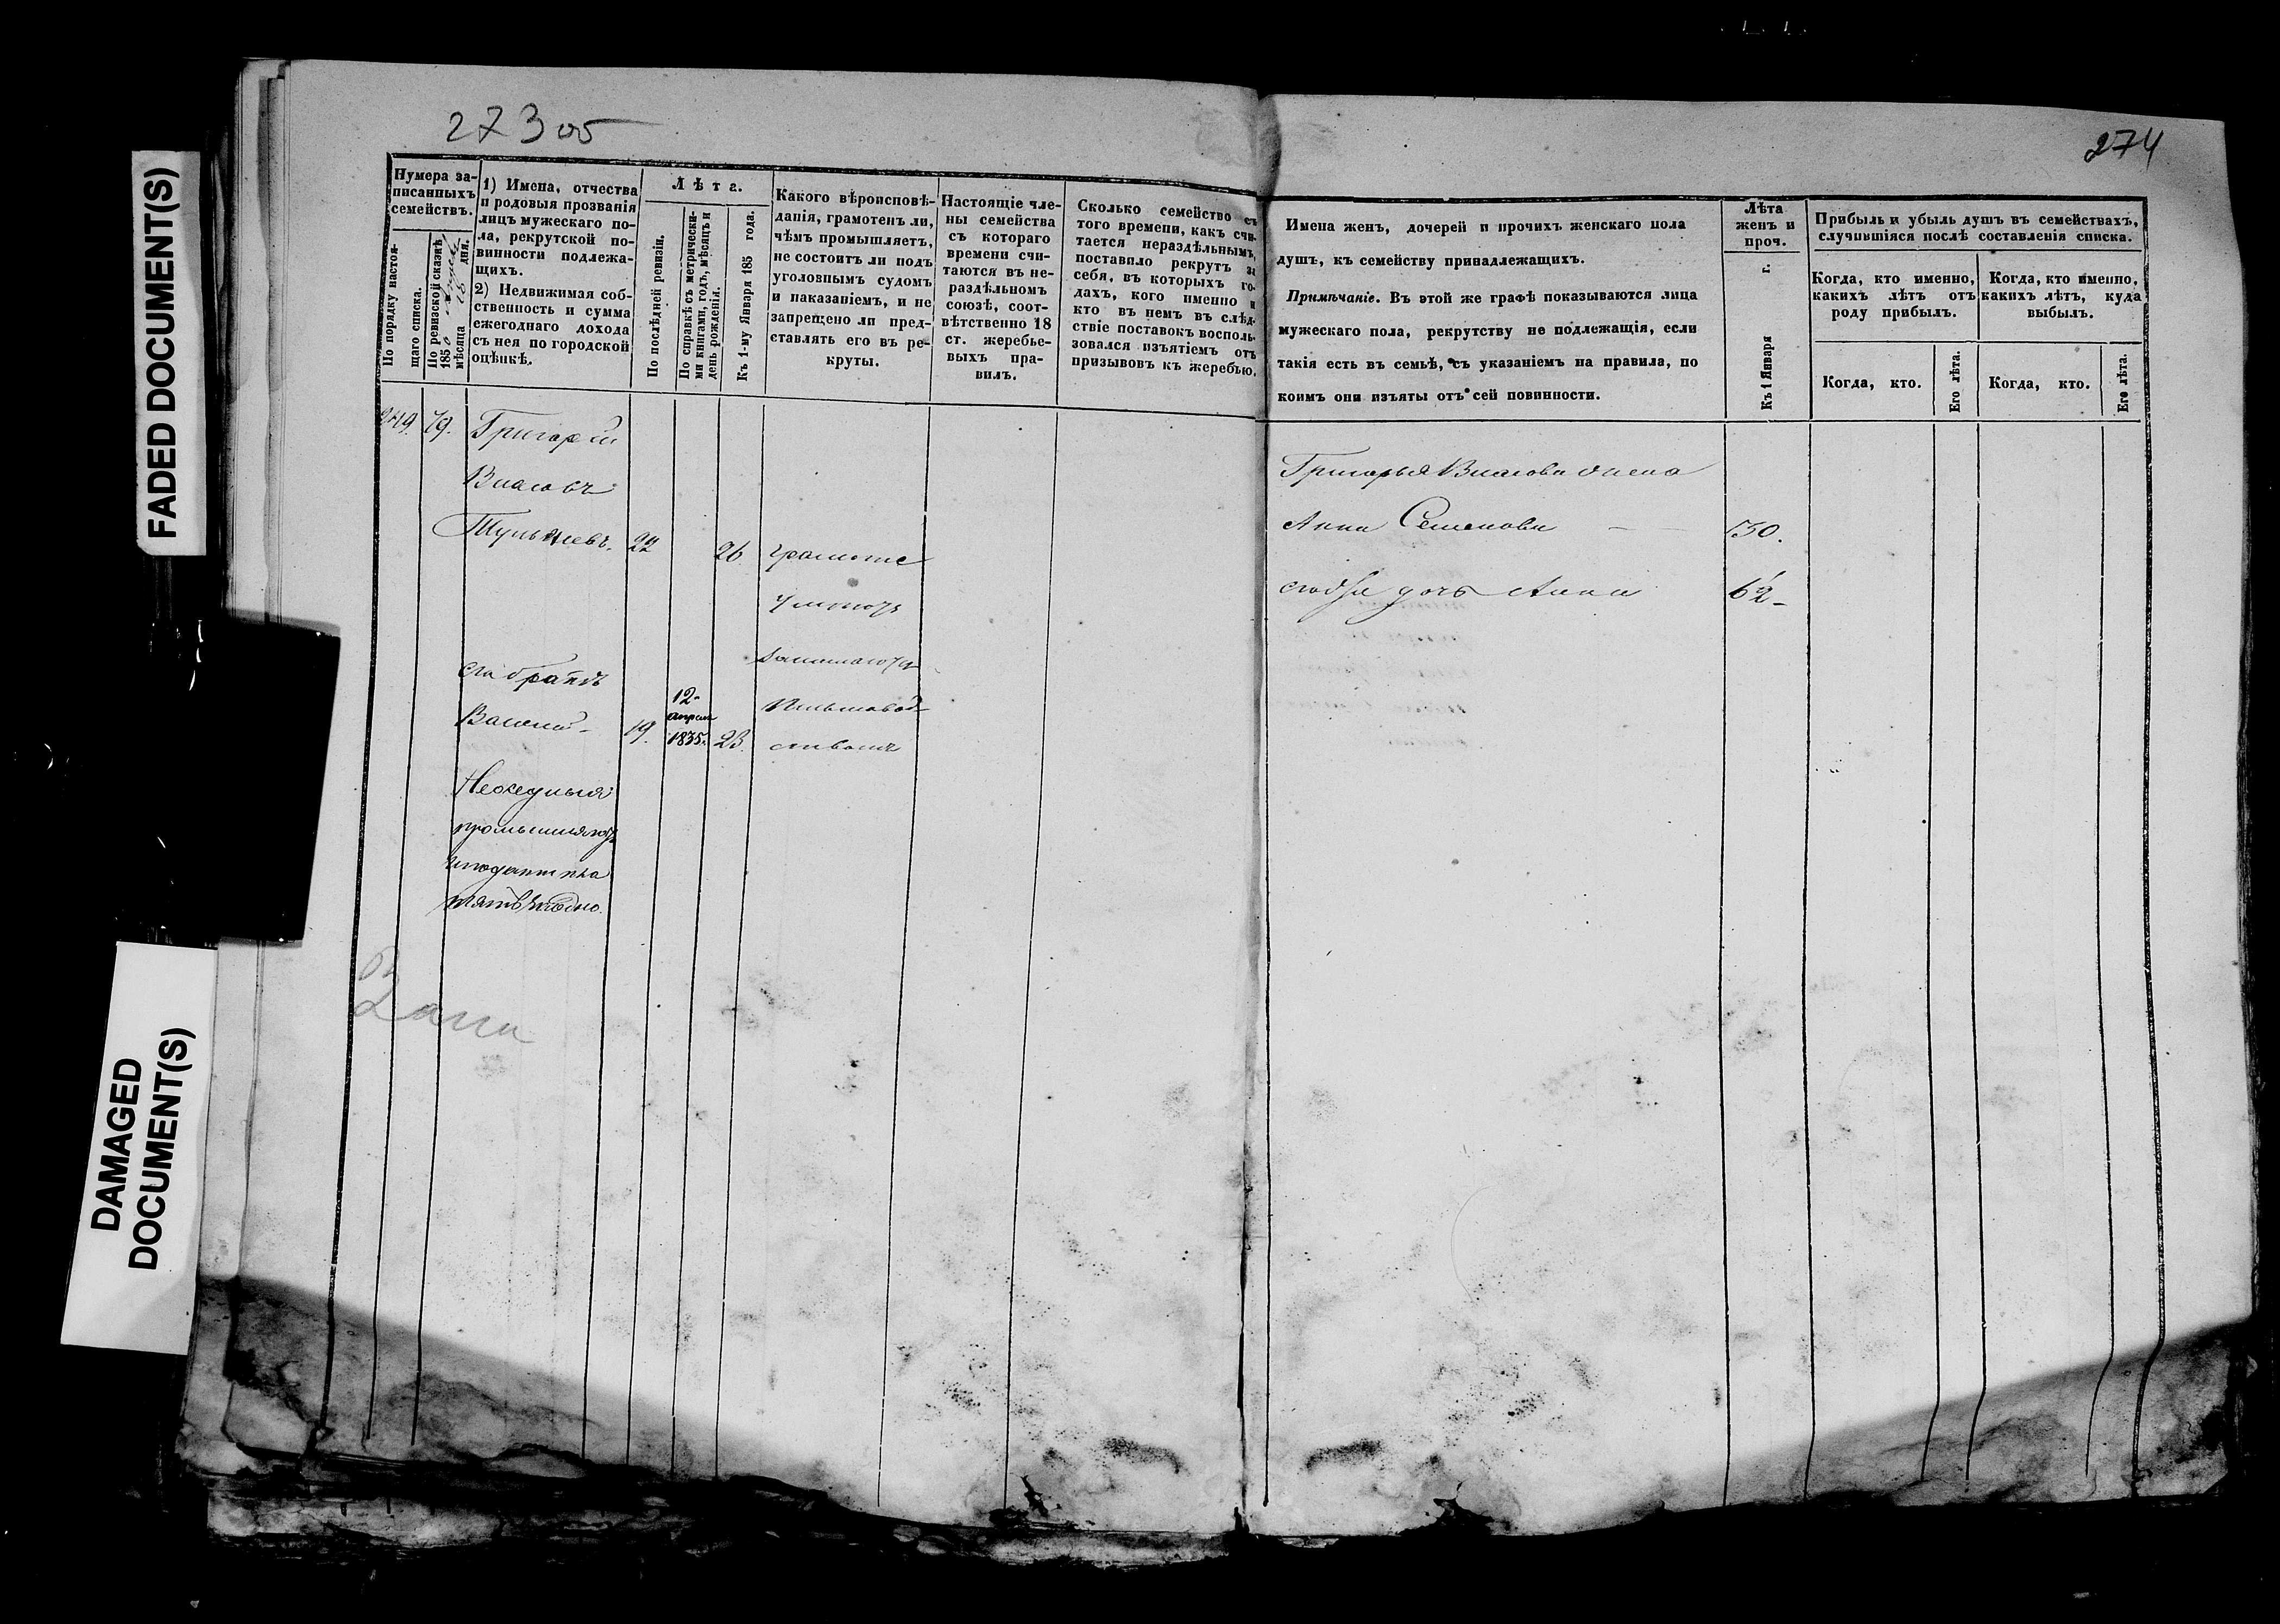 FADED DOCUMENT(S)
DAMAGED
DOCUMENT(S)
273 об
Нумера за-
писанныхъ
семействъ.
По порядку настоя-
щаго списка.
По ревизской сказкѣ
1850
мѣсяца дня.
1) Имена, отчества
и родовыя прозванія
лицъ мужескаго по-
ла, рекрутской по-
винности подлежа-
щихъ.
2) Недвижимая соб-
ственность и сумма
ежегоднаго дохода
съ нея по городской
оцѣнкѣ.
Лѣта.
По послѣдней ревизіи.
По справкѣ съ метрически-
ми книгами, годъ, мѣсяцъ и
день рожденія.
Къ 1-му Января 185 года.
Какого вѣроисповѣ-
данія, грамотенъ ли,
чѣмъ промышляетъ,
не состоитъ ли подъ
уголовнымъ судомъ
и наказаніемъ, и не
запрещено ли пред-
ставлять его въ ре-
круты.
Настоящіе чле-
ны семейства
съ котораго
времени счи-
таются въ не-
раздѣльномъ
союзѣ, соот-
вѣтственно 18
ст. жеребье-
выхъ пра-
вилъ.
Сколько семейство съ
того времени, какъ счи-
тается нераздѣльнымъ,
поставило рекрутъ за
себя, въ которыхъ го-
дахъ, кого именно и
кто въ немъ въ слѣд-
ствіе поставокъ восполь-
зовался изъятіемъ отъ
призывовъ къ жеребью.
249. 79. Григорій
Власовъ
22 26 грамоте
умеютъ
занимаются
его братъ
Василий 19. 12
апреля
1835. 23.
274
Имена женъ, дочерей и прочихъ женскаго пола
душъ, къ семейству принадлежащихъ.
Примѣчаніе. Въ этой же графѣ показываются лица
мужескаго пола, рекрутству не подлежащія, если
такія есть въ семьѣ, съ указаніемъ на правила, по
коимъ они изъяты отъ сей повинности.
Лѣта
женъ и
проч.
Къ 1 Января г.
Прибыль и убыль душъ въ семействахъ,
случившіяся послѣ составленія списка.
Когда, кто именно,
какихъ лѣтъ отъ
роду прибылъ.
Когда, кто именно,
какихъ лѣтъ, куда
выбылъ.
Когда, кто.
Его лѣта.
Когда, кто.
Его лѣта.
Григорья Власова жена
Анна Семенова
дочь Анна